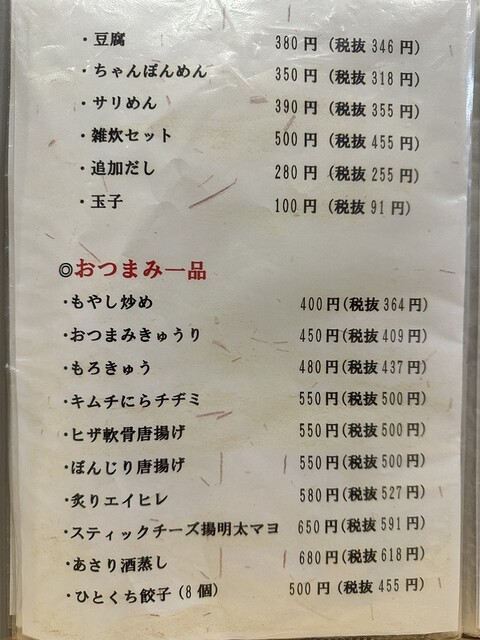 ・豆腐 380円 (税抜346円)
・ちゃんぽんめん 350円 (税抜318円)
・サリめん 390円 (税抜355円)
・雑炊セット 500円 (税抜455円)
・追加だし 280円 (税抜255円)
・玉子 100円 (税抜91円)
◎おつまみ一品
・もやし炒め 400円(税抜364円)
・おつまみきゅうり 450円(税抜409円)
・もろきゅう 480円(税抜437円)
・キムチにらチヂミ 550円(税抜500円)
・ヒザ軟骨唐揚げ 550円(税抜500円)
・ぼんじり唐揚げ 550円(税抜500円)
・炙りエイヒレ 580円(税抜527円)
・スティックチーズ揚明太マヨ 650円(税抜591円)
・あさり酒蒸し 680円(税抜618円)
・ひとくち餃子(8個) 500円(税抜455円)